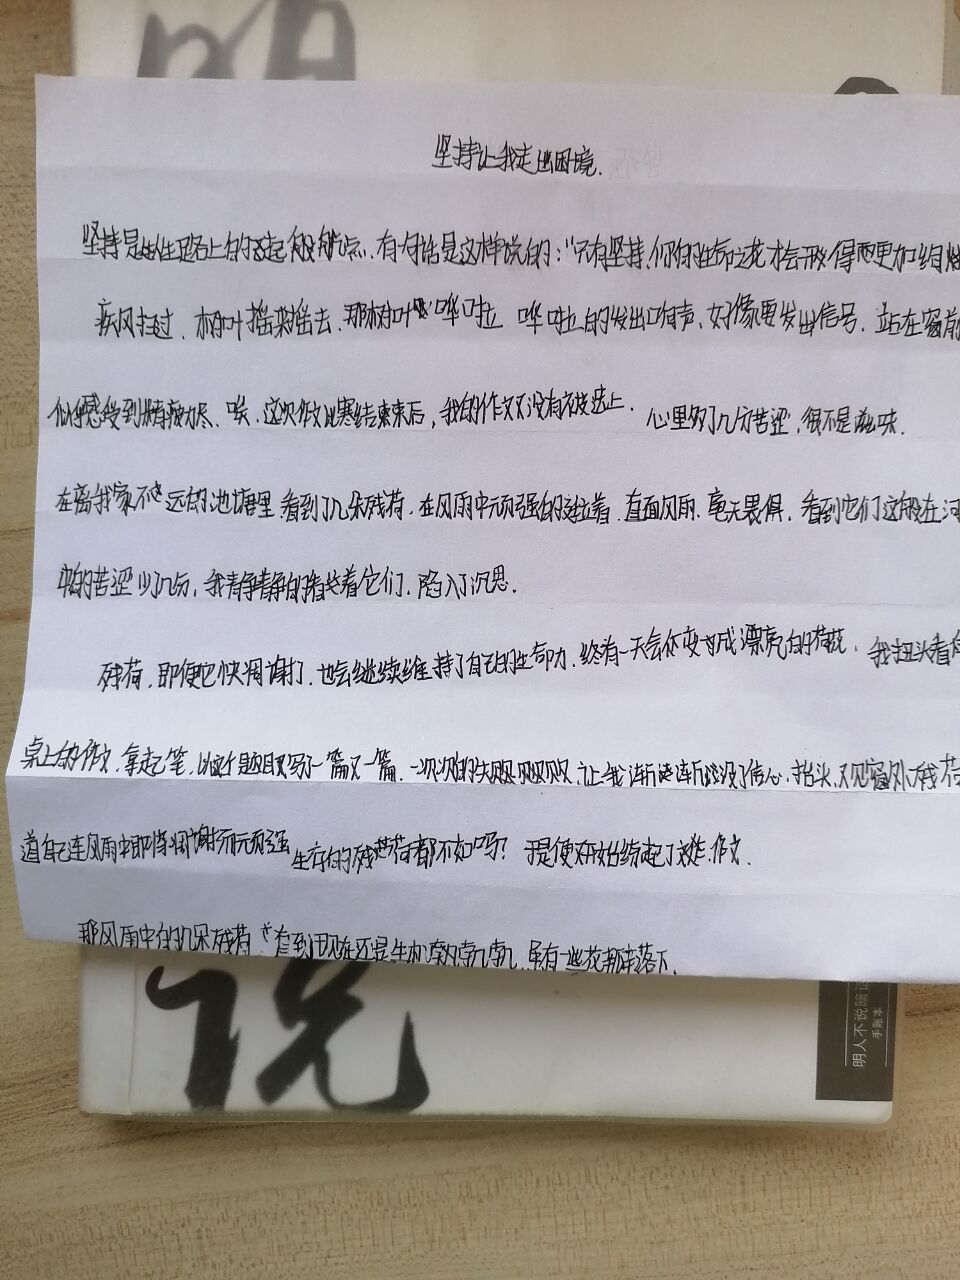 坚持让我走出困境.
坚持是人生路上的起航点.有句话是这样说的:"只有坚持,你的生命之花才会开得更加绚烂
疾风扫过,树叶摇来摇去,那树叶哗啦 哗啦的发出响声、好像要发出信号,站在窗前
似乎感受到精疲力尽、唉,这次作文比赛结束后,我的作文又没有被选上. 心里多了几分苦涩,很不是滋味.
在离我家不远的池塘里 看到了几朵残荷,在风雨中顽强的矗立着,直面风雨,毫无畏惧,看到它们这般在河
中的苦涩少了几分,我静静的看着它们,陷入了沉思.
残荷,即便它快凋谢了,也会继续维持了自己的生命力,终有一天会变成漂亮的荷花、我扭头看
桌上的作文,拿起笔,以这个题目又写了一篇又一篇,一次次的失败,让我渐渐没了信心,抬头,又见窗外残荷
道自己连风雨中即将凋谢而顽强生存的残荷都不如吗? 于是便开始练起了作文.
那风雨中的几朵残荷 直到现在还是生机勃勃,虽有一些花瓣落下,
说
明人不说暗话
手账本